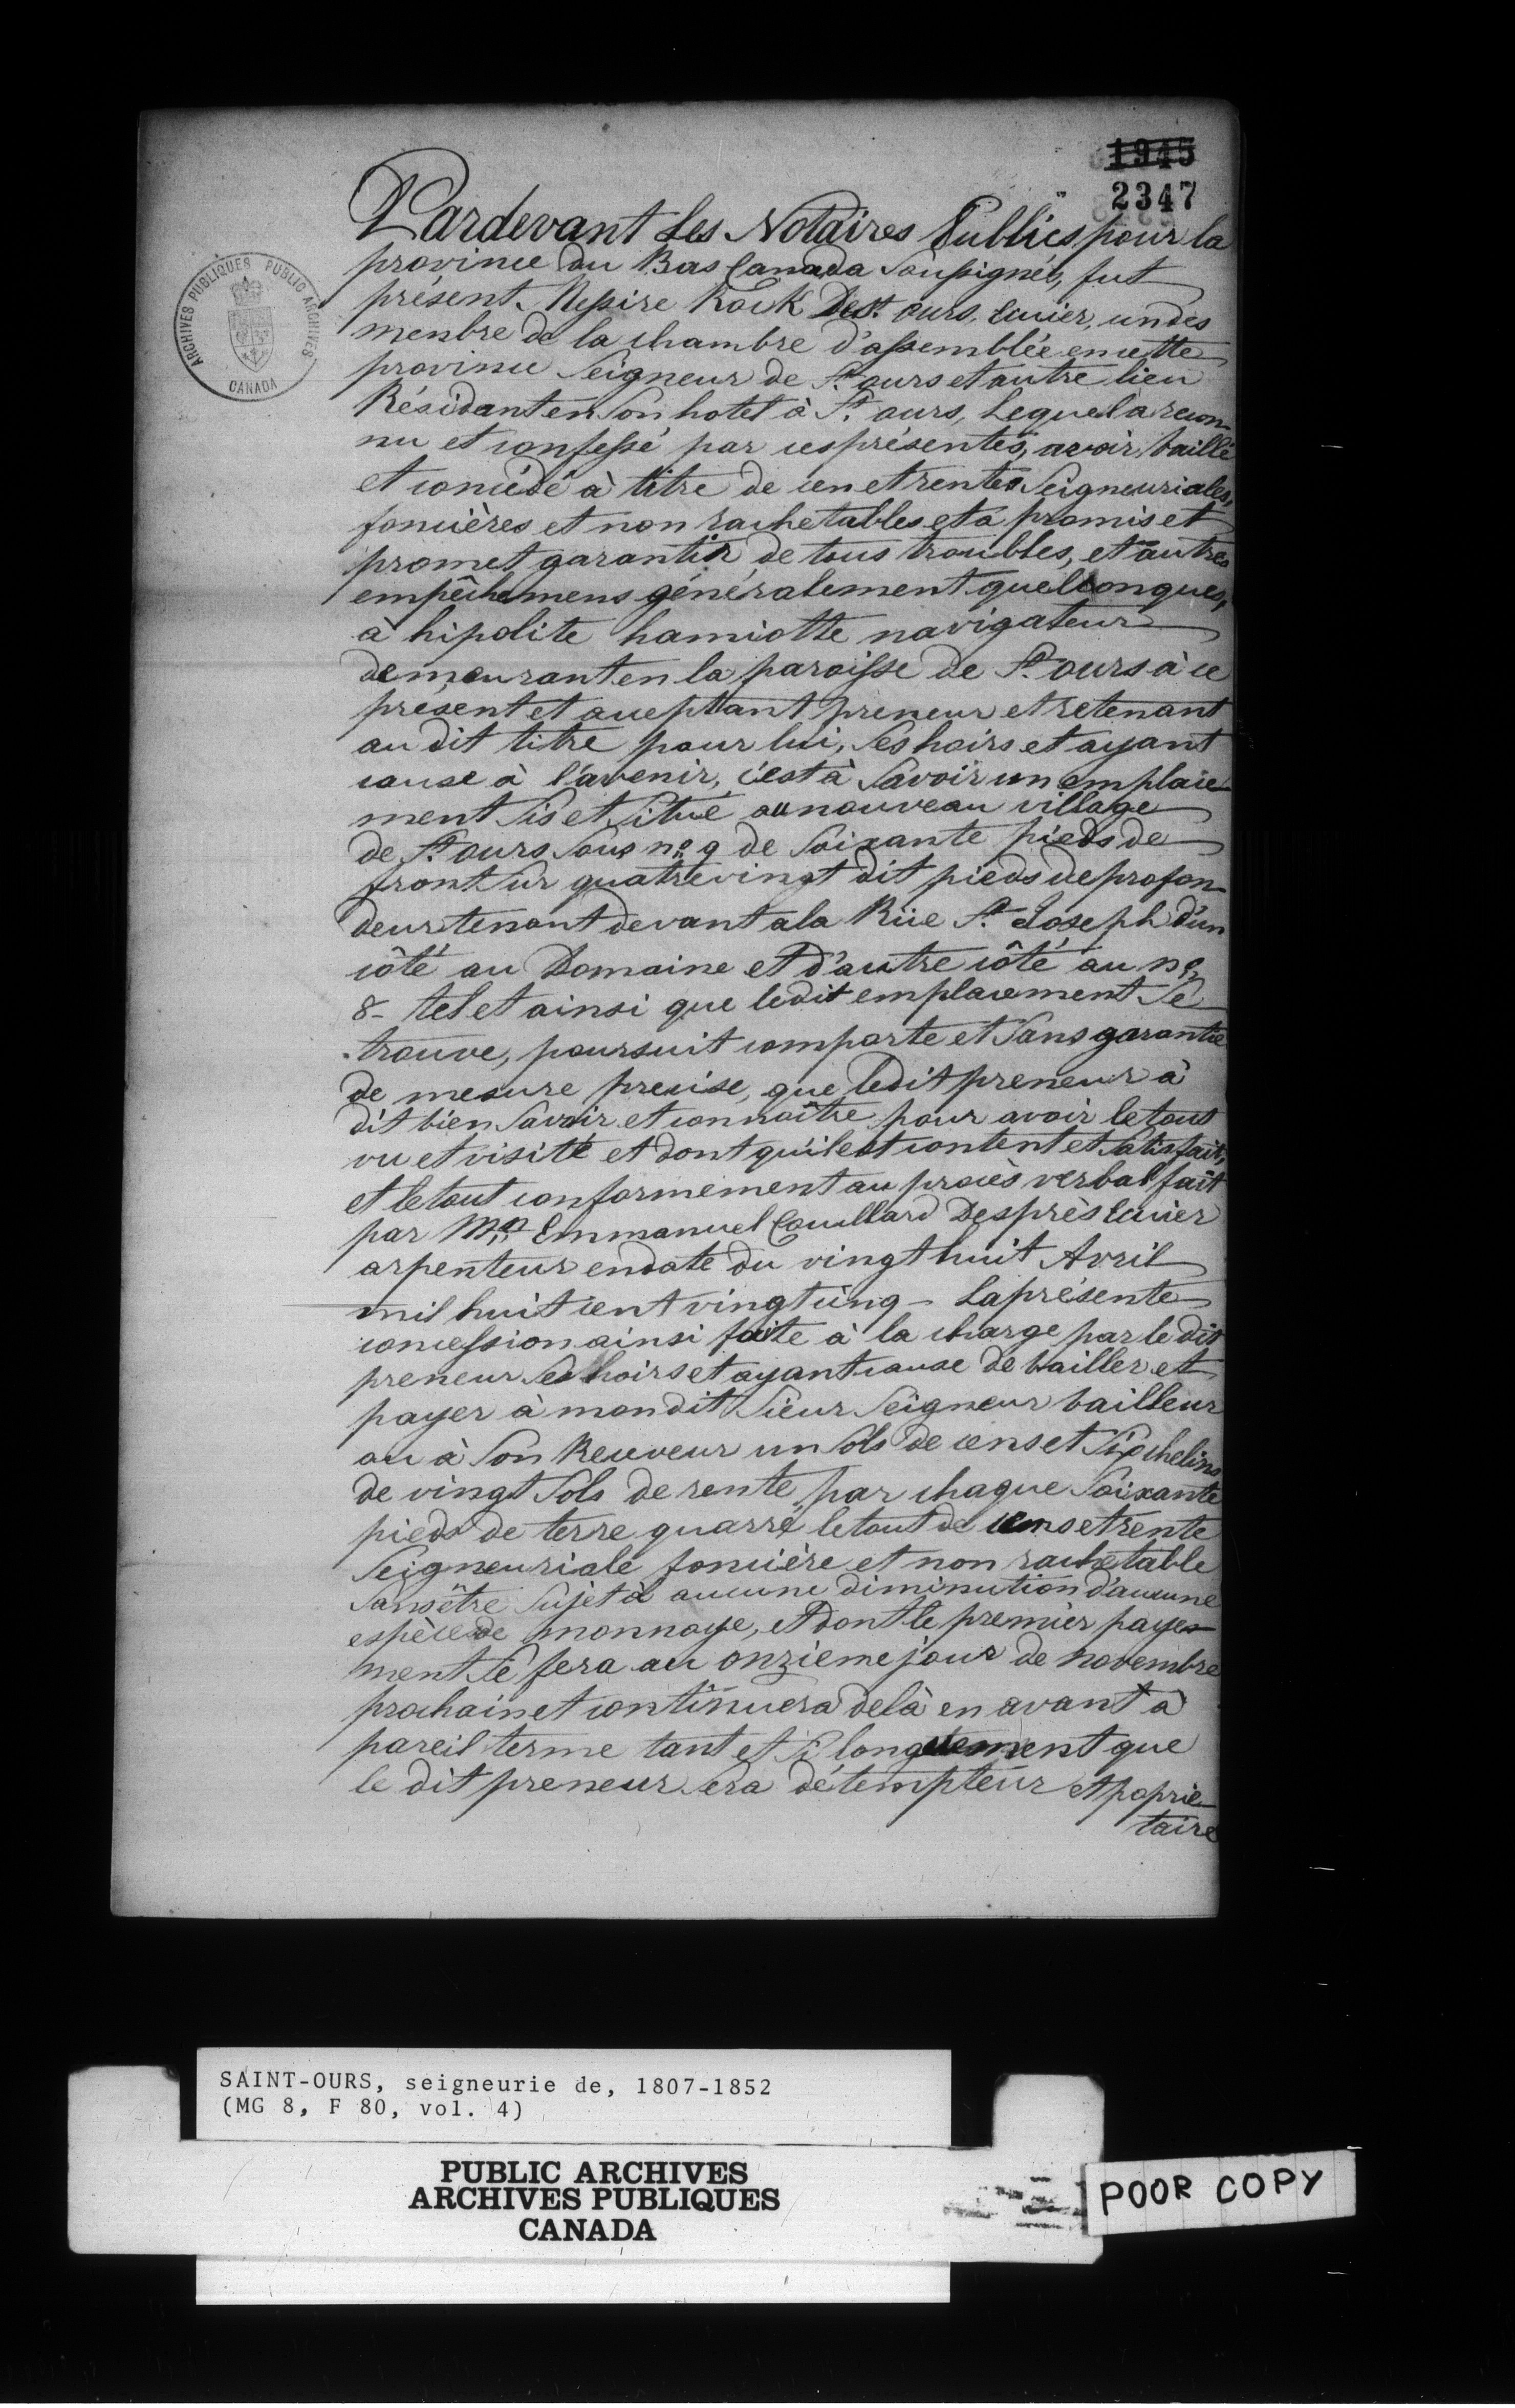 1945
2347
Pardevant Les Notaires Publics pour la
province du Bas Canada Soussignés, fut
présent. Messire Rock Dest. ours, Ecuier, un des
menbre de la chambre d'assemblée en cette
province Seigneur de St. ours et autre lieu
Résidant en Son hotel à St. ours, Lequel a recon-
nu et confessé par ces présentes, avoir baillé
et concédé à titre de cen et rentes Seigneuriales,
foncières et non rachetables et à promis et
promet garantir de tous troubles, et autres
empêchemens généralement quelconques,
à hipolite hamiotte navigateur
demeurant en la paroisse de St. ours à ce
présent et acceptant preneur et retenant
au dit titre pour lui, Ses hoirs et ayant
cause à l'avenir, c'est à Savoir un emplace
ment Sis et Situé au nouveau village
de St. ours Sous no. 9 de Soixante pieds de
front Sur quatrevingt dit pieds de profon-
deur tenant devant a la Rüe St. Joseph d'un
côté au Domaine et d'autre côté au no.
8- tel et ainsi que ledit emplacement Se
trouve, poursuit comporte et Sans garantie
de mesure precise, que ledit preneur à
dit bien Savoir et connaître pour avoir le tout
vu et visité et dont qu'il est content et Satisfait,
et le tout conformément au procès verbal fait
par Mr. Emmanuel Couillard Desprès Ecuier
arpenteur en date du vingt huit Avril
mil huit cent vingt cinq - La présente
concession ainsi faite à la charge par le dit
preneur Ses hoirs et ayant cause de bailler et
payer à mon dit Sieur Seigneur bailleur
ou à Son Receveur un Sols de cens et Six chelins
de vingt Sols de rente par chaque Soixante
pieds de terre quarré le tout de cens et rente
Seigneuriale foncière et non rachetable
Sans être Sujet à aucune diminution d'aucune
espèce de monnaye, et dont le premier paye-
ment Se fera au onzième jour de novembre
prochain et continuera delà en avant à
pareil terme tant et Si longuement que
le dit preneur Sera détempteur et poprié-
taire
ARCHIVES PUBLIQUES PUBLIC ARCHIVES
CANADA
SAINT-OURS, seigneurie de, 1807-1852
(MG 8, F 80, vol. 4)
PUBLIC ARCHIVES
ARCHIVES PUBLIQUES
CANADA
POOR COPY